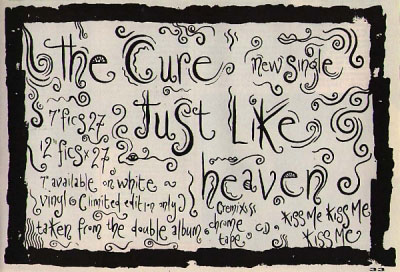 the Cure new single
Just Like
heaven
7" fics 27
12" ficsx 27
7" available on white
vinyl (limited edition only)
taken from the double album chrome
tape CD
Kiss Me Kiss Me
Kiss Me
33